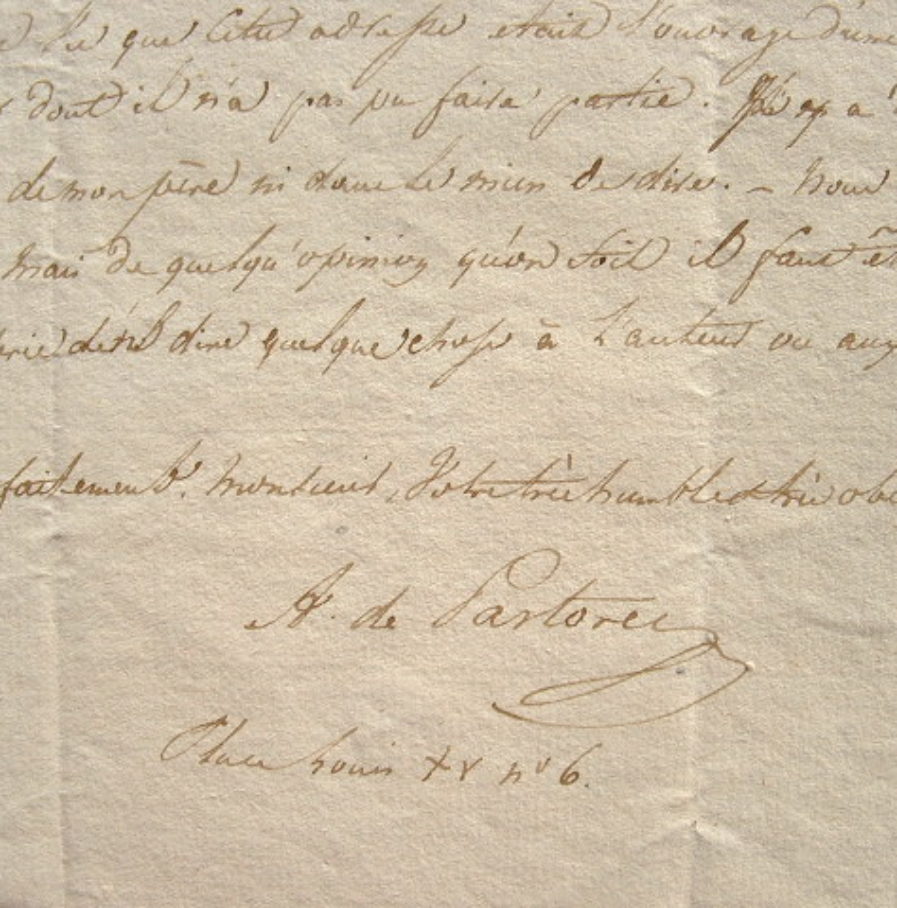 que cette adresse etait l'ouvrage d'une
dont il n'a pas pu faire partie. il n'y a
de mon père ni dans le mien de dire. – nous
mais de quelqu'opinion qu'on soit il faut
dire quelque chose à l'auteur ou aux
faitement. Monsieur, Votre très humble & très obé
A. de Pastoret
Place Louis XV n° 6.